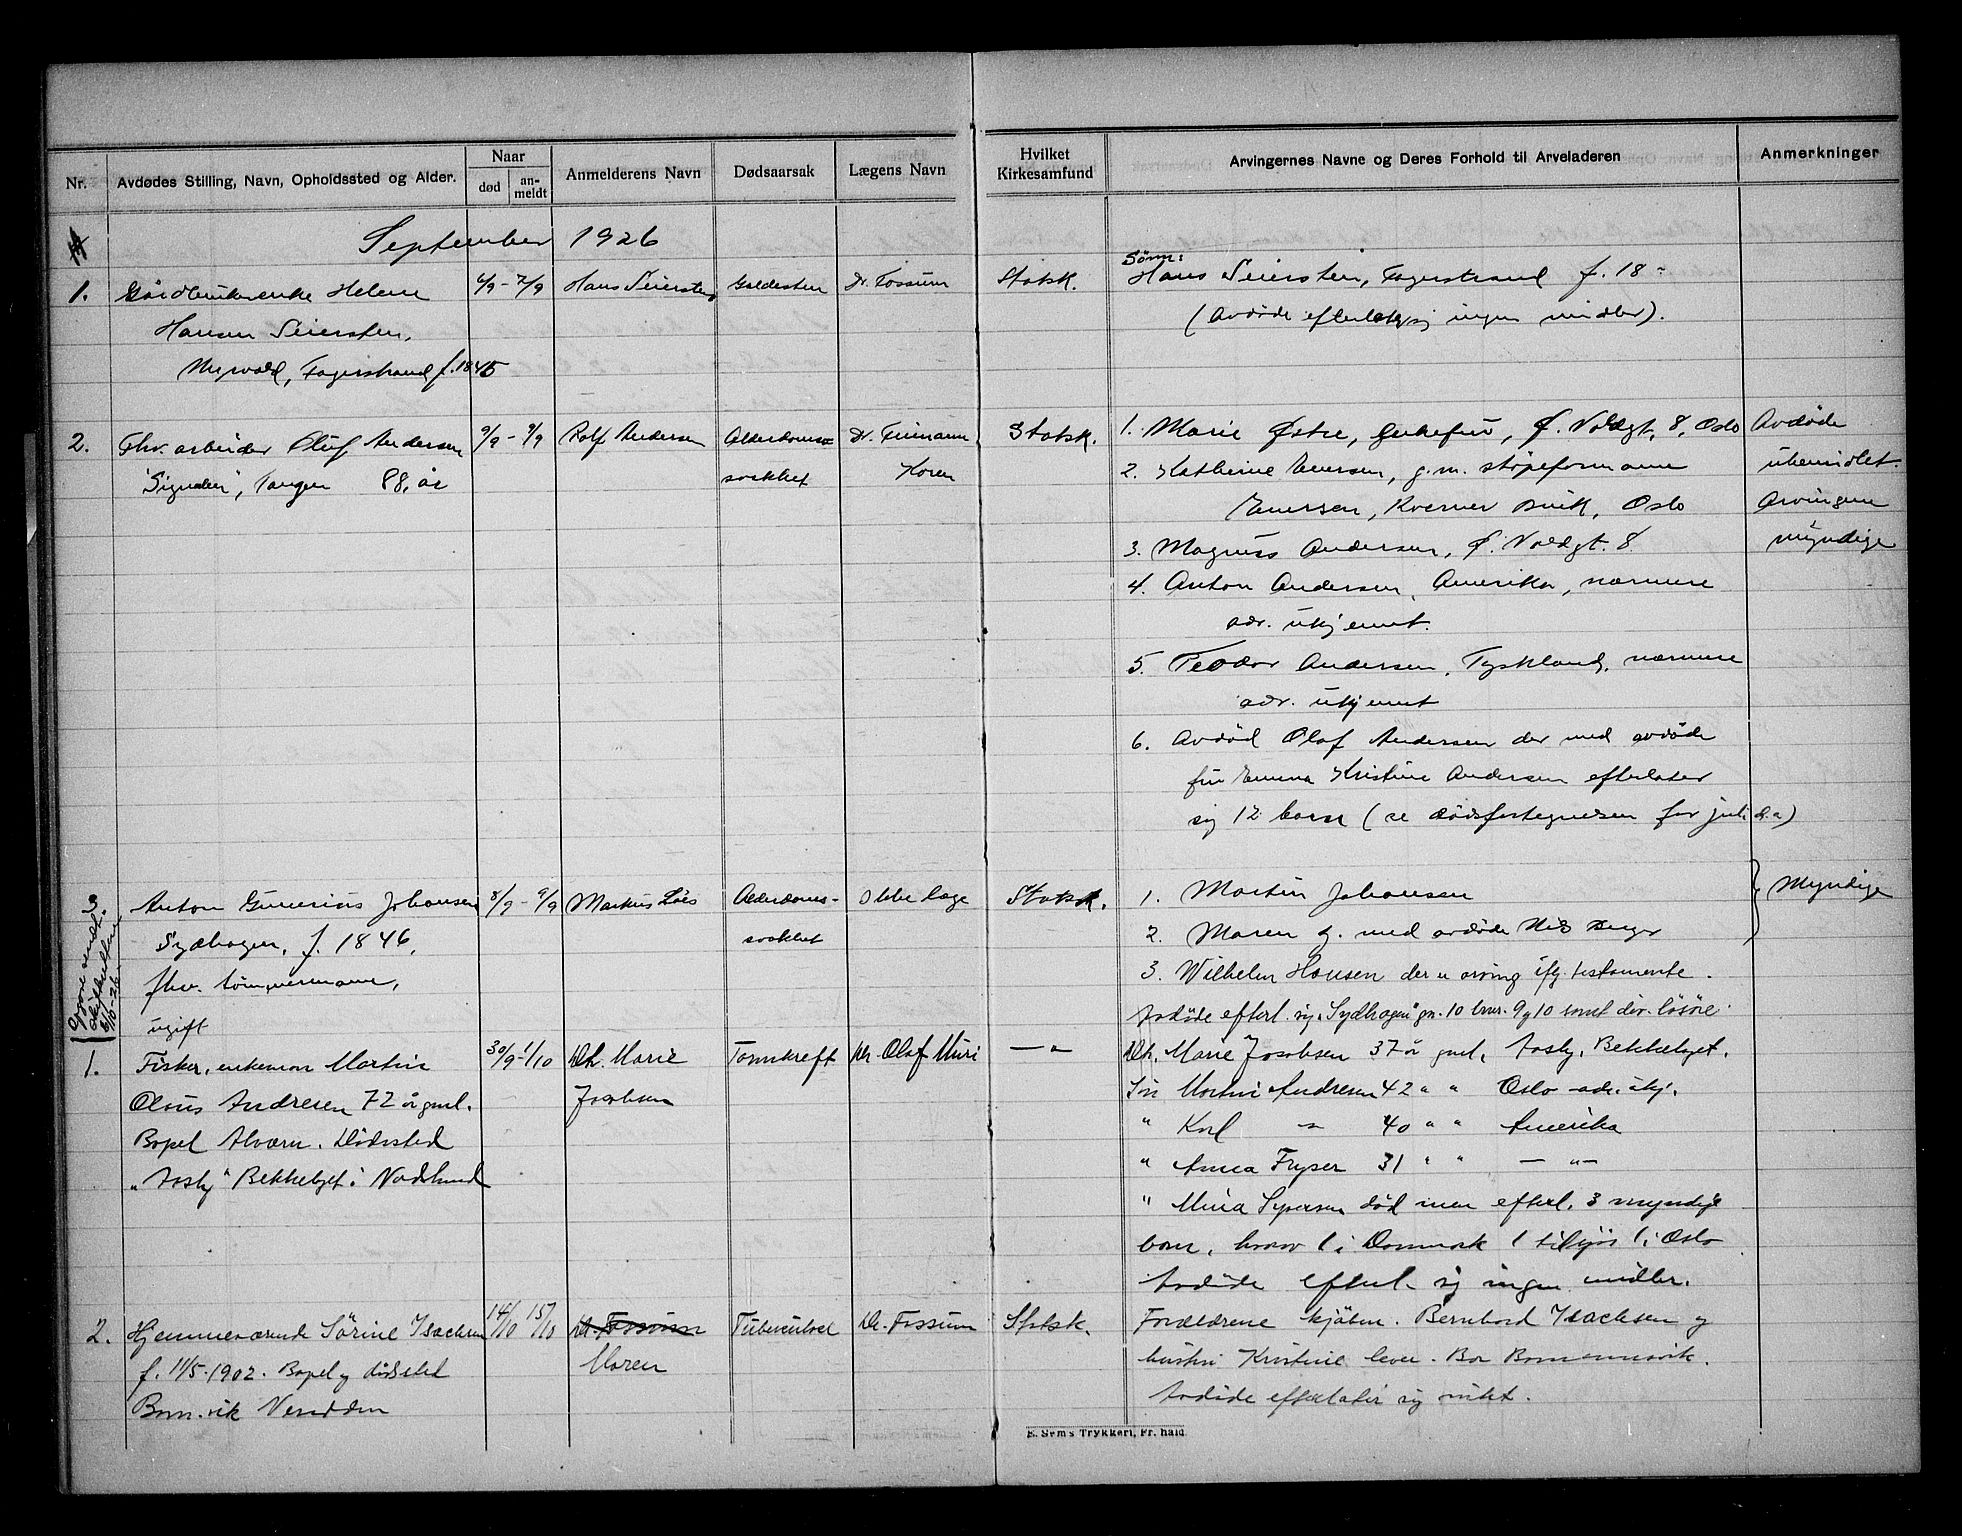 Nr.
Avdødes Stilling, Navn, Opholdssted og Alder.
Naar
død
an-
meldt
Anmelderens Navn
Dødsaarsak
Lægens Navn
Hvilket
Kirkesamfund
Arvingernes Navne og Deres Forhold til Arveladeren
Anmerkninger
September 1926
1. Gårdbrukerenke Helene
Hansen Seiersten,
Myrvold, Fagerstrand f. 1845
6/9 - 7/9
Hans Seiersten
Galdesten
Dr. Fossum
Statsk.
Sønn:
Hans Seiersten, Fagerstrand f. 18
(Avdøde efterlot sig ingen midler).
2. Fhv. arbeider Oluf Andersen
"Signalen", Tangen 88. år
9/9 - 9/9
Rolf Andersen
Alderdoms=
svakhet
Dr.
Koren
Statsk.
1. Marie Østre, enkefru, Ø. Voldgt. 8, Oslo
2. Kathrine Evensen, g.m. støpeformann
Evensen, Kværner bruk, Oslo
3. Magnus Andersen, Ø. Voldgt. 8
4. Anton Andersen, Amerika, nærmere
adr. ukjennt.
5. Teodor Andersen, Tyskland, nærmere
adr. ukjennt
6. Avdød Olaf Andersen der med avdøde
fru Emma Kristine Andersen efterlater
sig 12 barn (se dødsfortegnelsen for juli d.a)
Avdøde
ubemidlet.
Arvingene
myndige
3. Anton Gunerius Johansen
Sydhagen, f. 1846,
fhv. tømmermann,
ugift
Opgave sendt
skifteretten
6/10-26
8/9 - 9/9
Markus Løes
Alderdoms-
svakhet
Ikke læge
Statsk.
1. Martin Johansen
2. Maren g. med avdøde Nils Berger
3. Wilhelm Hansen der er arving ifg. testamente.
Avdøde efterl. sig "Sydhagen" gn. 10 brnr. 9 og 10 samt div. løsøre.
Myndige
1. Fisker, enkemann Martin
Olaus Andresen 72 år gml.
Bopel Alværn. Dødssted
"Aasly" Bekkelaget i Nordstrand
30/9 - 1/10
Dt. Marie
Jacobsen
Tarmkreft
Dr. Olaf Muri
— " —
Dt. Marie Jacobsen 37 år gml. Aasly, Bekkelaget.
Søn Martin Andresen 42 " " Oslo adr. ukj.
" Karl " 40 " " Amerika
" Anna Fryser 31 " " — " —
" Mina Sypersen død men efterl. 3 myndige
barn, hvorav 1 i Danmark 1 tilsjøs 1 i Oslo.
Avdøde efterl. sig ingen midler.
2. Hjemmeværende Sørine Isachsen
f. 11/5-1902. Bopel og dødssted
Born.vik Nesodden
14/10 15/10
Dr. Fossum
Moren
Tuberculose
Dr. Fossum
Statsk.
Forældrene skjøbm. Bernhard Isachsen og
hustru Kristine lever. Bor Bommensvik.
Avdøde efterlater sig intet.
E. Sem's Trykkeri, Fr.hald